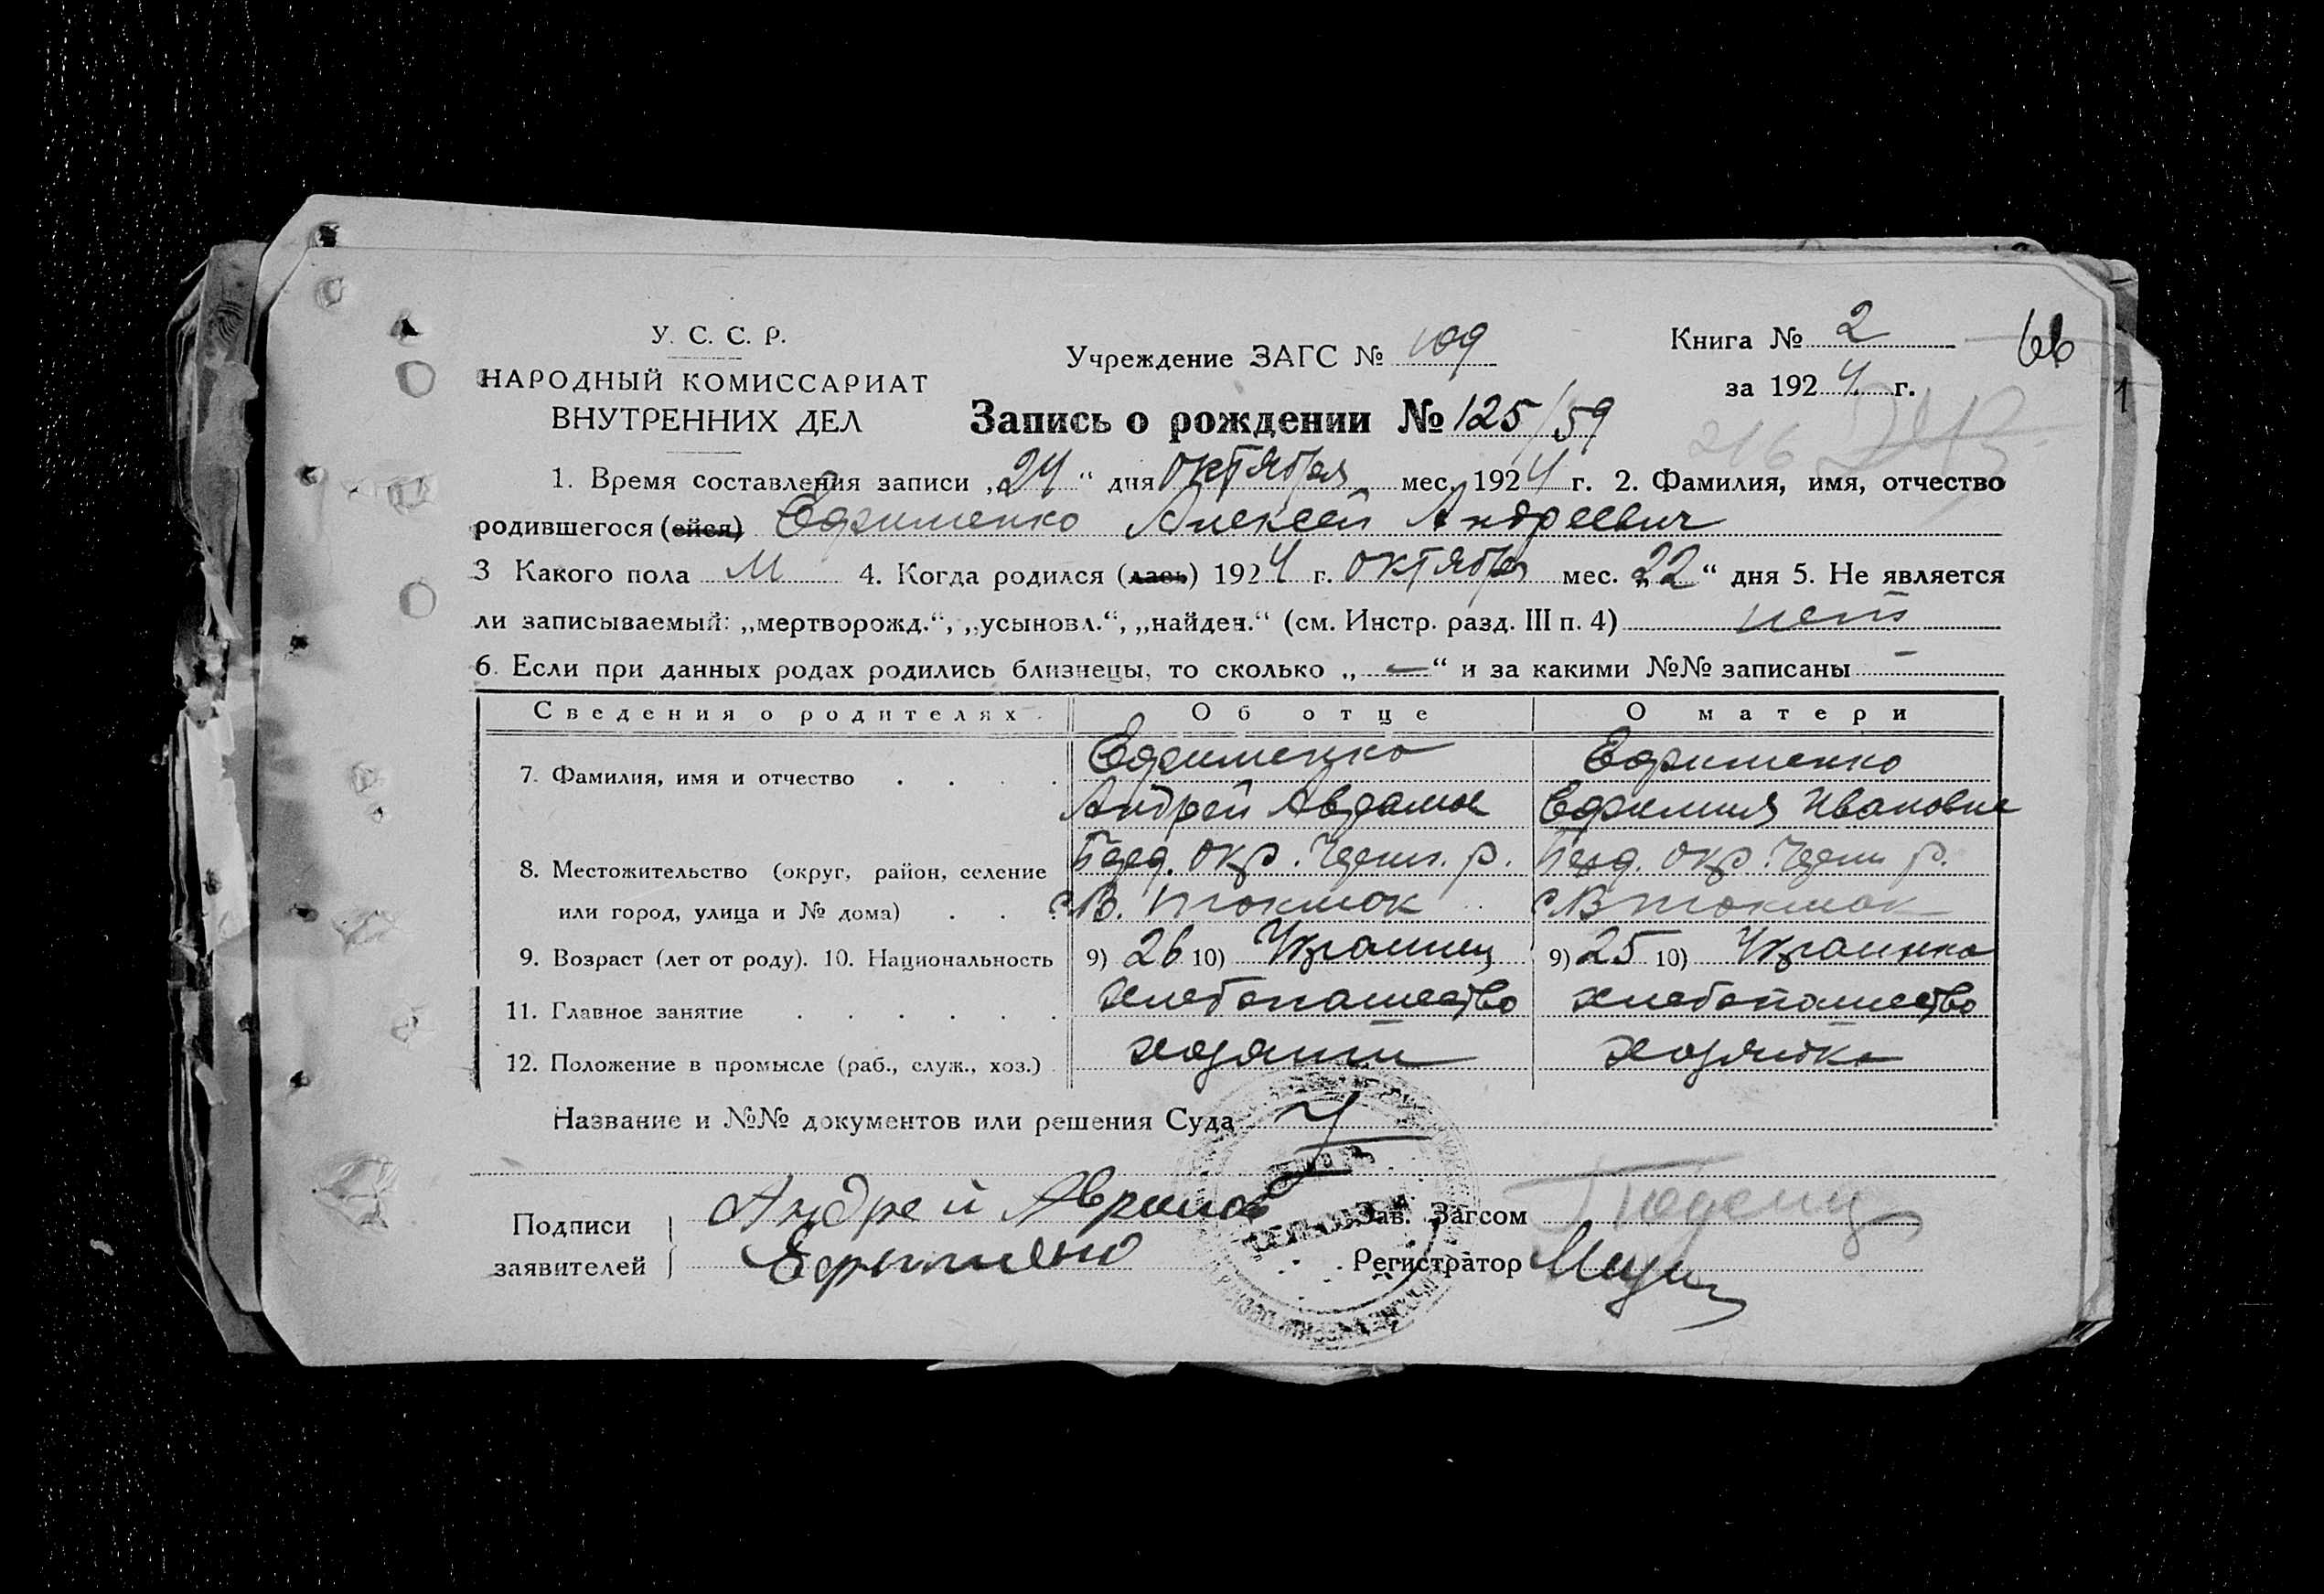 У. С. С. Р.
НАРОДНЫЙ КОМИССАРИАТ
ВНУТРЕННИХ ДЕЛ
Учреждение ЗАГС № 109
Книга № 2
66
за 1924 г.
Запись о рождении № 125/59
216
1. Время составления записи „24“ дня октября мес. 1924 г. 2. Фамилия, имя, отчество
родившегося (ейся) Ефименко Алексей Андреевич
3 Какого пола М 4. Когда родился (лась) 1924 г. октября мес. „22“ дня 5. Не является
ли записываемый: „мертворожд.“, „усыновл.“, „найден.“ (см. Инстр. разд. III п. 4) нет
6. Если при данных родах родились близнецы, то сколько „ — “ и за какими №№ записаны —
Сведения о родителях. Об отце О матери
7. Фамилия, имя и отчество . . . . Ефименко Ефименко
Андрей Аврамов Ефимия Ивановна
8. Местожительство (округ, район, селение Берд. окр. Черн. р. Берд. окр. Черн р.
или город, улица и № дома) . . . с В. Токмак с В Токмак
9. Возраст (лет от роду). 10. Национальность 9) 26 10) Украинец 9) 25 10) Украинка
11. Главное занятие . . . . . . хлебопашество хлебопашество
12. Положение в промысле (раб., служ., хоз.) хозяин хозяйка
Название и №№ документов или решения Суда
Подписи заявителей
Андрей Аврамов
Ефименко
Зав. Загсом
Регистратор